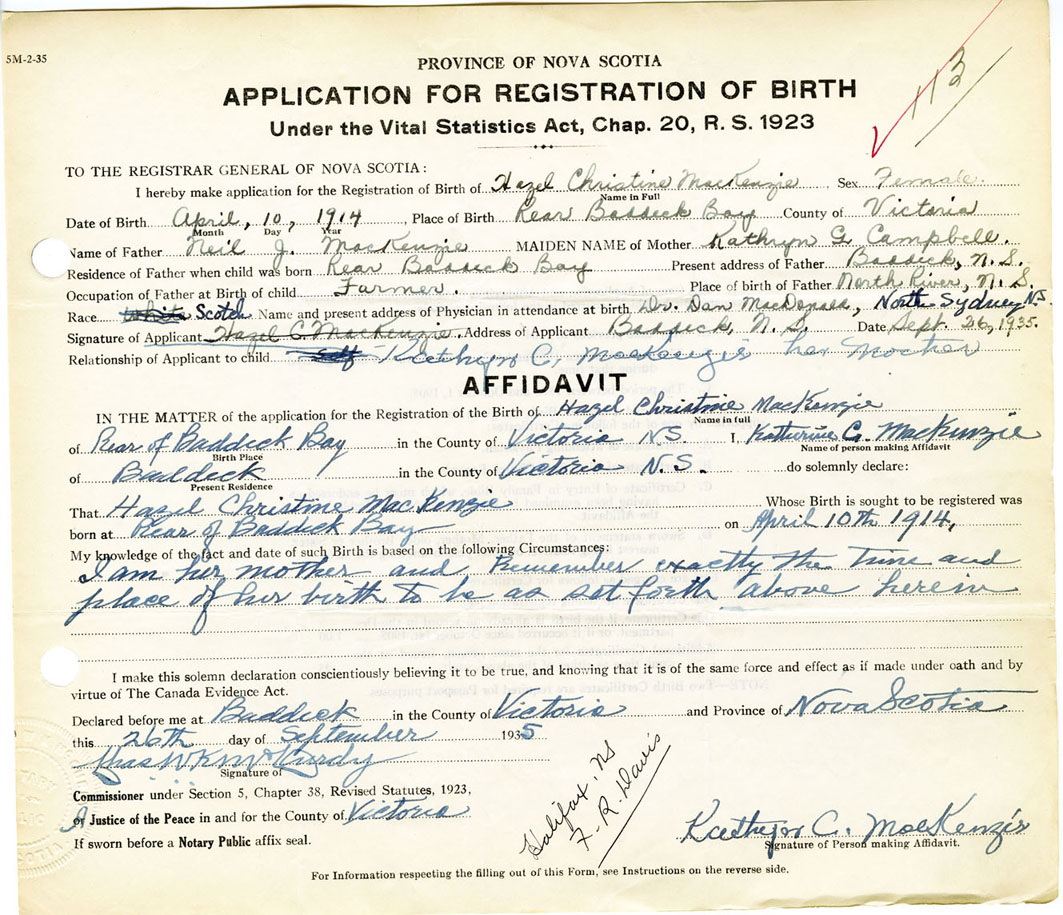 5M-2-35
PROVINCE OF NOVA SCOTIA
APPLICATION FOR REGISTRATION OF BIRTH
Under the Vital Statistics Act, Chap. 20, R. S. 1923
113
TO THE REGISTRAR GENERAL OF NOVA SCOTIA:
I hereby make application for the Registration of Birth of Hazel Christine MacKenzie Sex Female.
Name in Full
Date of Birth April, 10, 1914 Place of Birth Rear Baddeck Bay County of Victoria
Month Day Year
Name of Father Neil J. MacKenzie MAIDEN NAME of Mother Kathryn G. Campbell.
Residence of Father when child was born Rear Baddeck Bay Present address of Father Baddeck, N. S.
Occupation of Father at Birth of child Farmer. Place of birth of Father North River, N. S.
Race White Scotch Name and present address of Physician in attendance at birth Dr. Dan MacDonald, North Sydney NS
Signature of Applicant Hazel C. MacKenzie. Address of Applicant Baddeck, N. S. Date Sept. 26, 1935.
Relationship of Applicant to child Self Kathryn C. MacKenzie her Mother
AFFIDAVIT
IN THE MATTER of the application for the Registration of the Birth of Hazel Christine MacKenzie
Name in full
of Rear of Baddeck Bay in the County of Victoria N.S. I, Katherine C. MacKenzie
Birth Place Name of person making Affidavit
of Baddeck in the County of Victoria N.S. do solemnly declare:
Present Residence
That Hazel Christine MacKenzie Whose Birth is sought to be registered was
born at Rear of Baddeck Bay on April 10th 1914,
My knowledge of the fact and date of such Birth is based on the following Circumstances:
I am her mother and remember exactly the time and
place of her birth to be as set forth above herein
I make this solemn declaration conscientiously believing it to be true, and knowing that it is of the same force and effect as if made under oath and by
virtue of The Canada Evidence Act.
Declared before me at Baddeck in the County of Victoria and Province of Nova Scotia
this 26th day of September 1935
Signature of
Commissioner under Section 5, Chapter 38, Revised Statutes, 1923,
A Justice of the Peace in and for the County of Victoria
If sworn before a Notary Public affix seal.
Halifax, NS
F. R. Davis
Kathryn C. MacKenzie
Signature of Person making Affidavit.
For Information respecting the filling out of this Form, see Instructions on the reverse side.